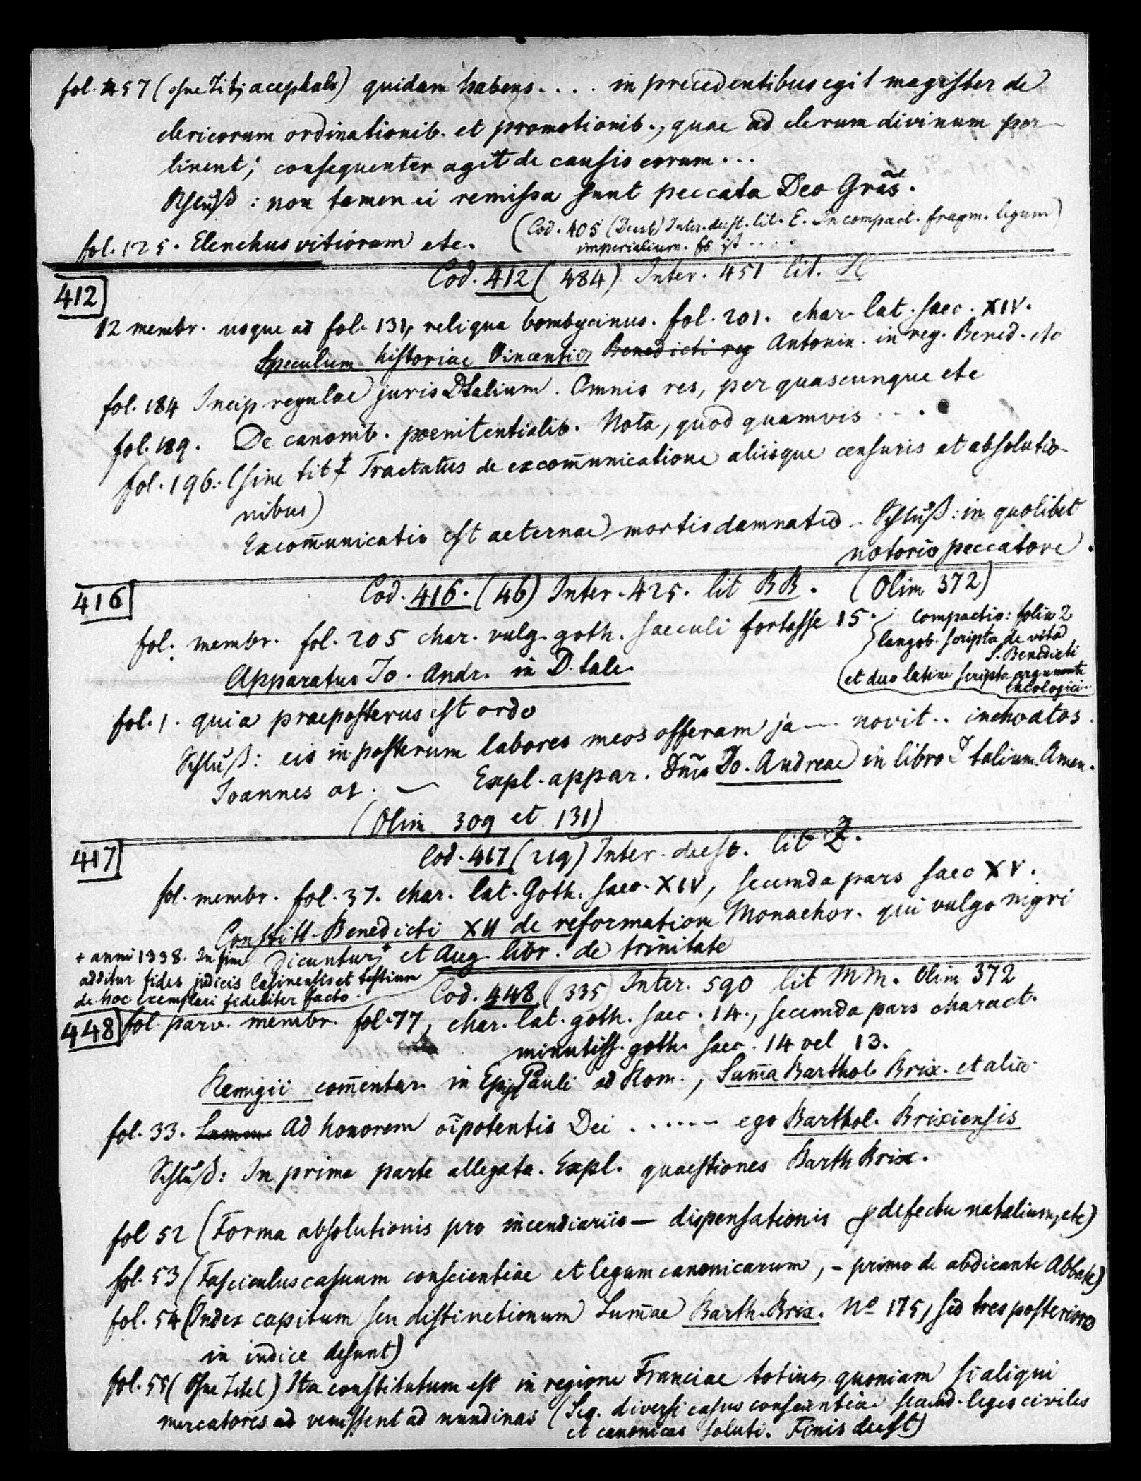 fol. 457 (ohne Tit; acephalo) quidam habens . . . . in precedentibus egit magister de
clericorum ordinationib. et promotionib., quae ad clerum divinum per-
tinent; consequenter agit de causis eorum . . .
Schluß : non tamen ei remissa sunt peccata Deo Grãs.
fol. 125. Elenchus vitiorum etc.
(Cod. 405 (Deest) Inter. deest. lit. E. In compact. fragm. legum
imperialium.
412
Cod. 412 (484) Inter. 451 lit. H
12 membr. usque ad fol. 131, reliqua bombycinus. fol. 201. char. lat. saec. XIV.
Speculum historiae Vincentii Benedicti reg Antonin. in reg. Bened. etc
fol. 184 Incip regulae juris Dtalium. Omnis res, per quascunque etc
fol. 189. De canonib. poenitentialib. Nota, quod quamvis . . .
fol. 196. (sine tit Tractatus de excom̄unicatione aliisque censuris et absolutio-
nibus)
Excom̄unicatio est aeternae mortis damnatio - Schluß: in quolibet
notorio peccatore.
416
Cod. 416. (46) Inter. 425. lit BB. (Olim 372)
fol. membr. fol. 205 char. vulg. goth. saeculi fortasse 15.
compactio: folia 2
langob. scripta de vita
S. Benedicti
et duo latine scripta argumenti
theologici.
Apparatus Jo. Andr. in D.tale
fol. 1. quia praeposterus est ordo
Schluß: eis in posterum labores meos offeram ja — novit . . inchoatos.
Joannes at. — Expl. appar. Dn̄i Jo. Andreae in libro talium. Amen.
(Olim 309 et 131)
417
Cod. 417 (219) Inter. deest. lit Z.
fol. membr. fol. 37. char. lat. Goth. saec. XIV, secunda pars saec XV.
Constitt. Benedicti XII de reformatione Monachor. qui vulgo nigri
dicuntur + et Aug libr. de trinitate
+ anni 1338. In fine
additur fides judicis Casinensis et testium
de hoc exemplari fideliter facto.
448
Cod. 448 (335) Inter. 590 lit MM. Olim 372
fol. parv. membr. fol. 77, char. lat. goth. saec. 14., secunda pars charact.
minutiss. goth. saec. 14 vel 13.
Remigii com̄entar. in Epp Pauli ad Rom., Sum̄a Barthol. Brix. et alia
fol. 33. Summa Ad honorem oīpotentis Dei . . . . . . - ego Barthol. Brixiensis
Schluß: In prima parte allegata. Expl. quaestiones Barth Brix.
fol 52 (Forma absolutionis pro incendiariis — dispensationis defectu natalium, etc)
fol. 53 (Fasciculus casuum conscientiae et legum canonicarum, - primo de abdicante Abbate)
fol. 54 (Index capitum seu distinctionum Sum̄ae Barth. Brix. No 175, sed tres posteriora
in indice desunt)
fol. 55 (Ohne Titel) Ita constitutum est in regione Franciae totius, quoniam si aliqui
mercatores ad venissent ad nundinas (Seq. diversi casus conscientiae secund. leges civiles
et canonicas soluti. Finis deest)